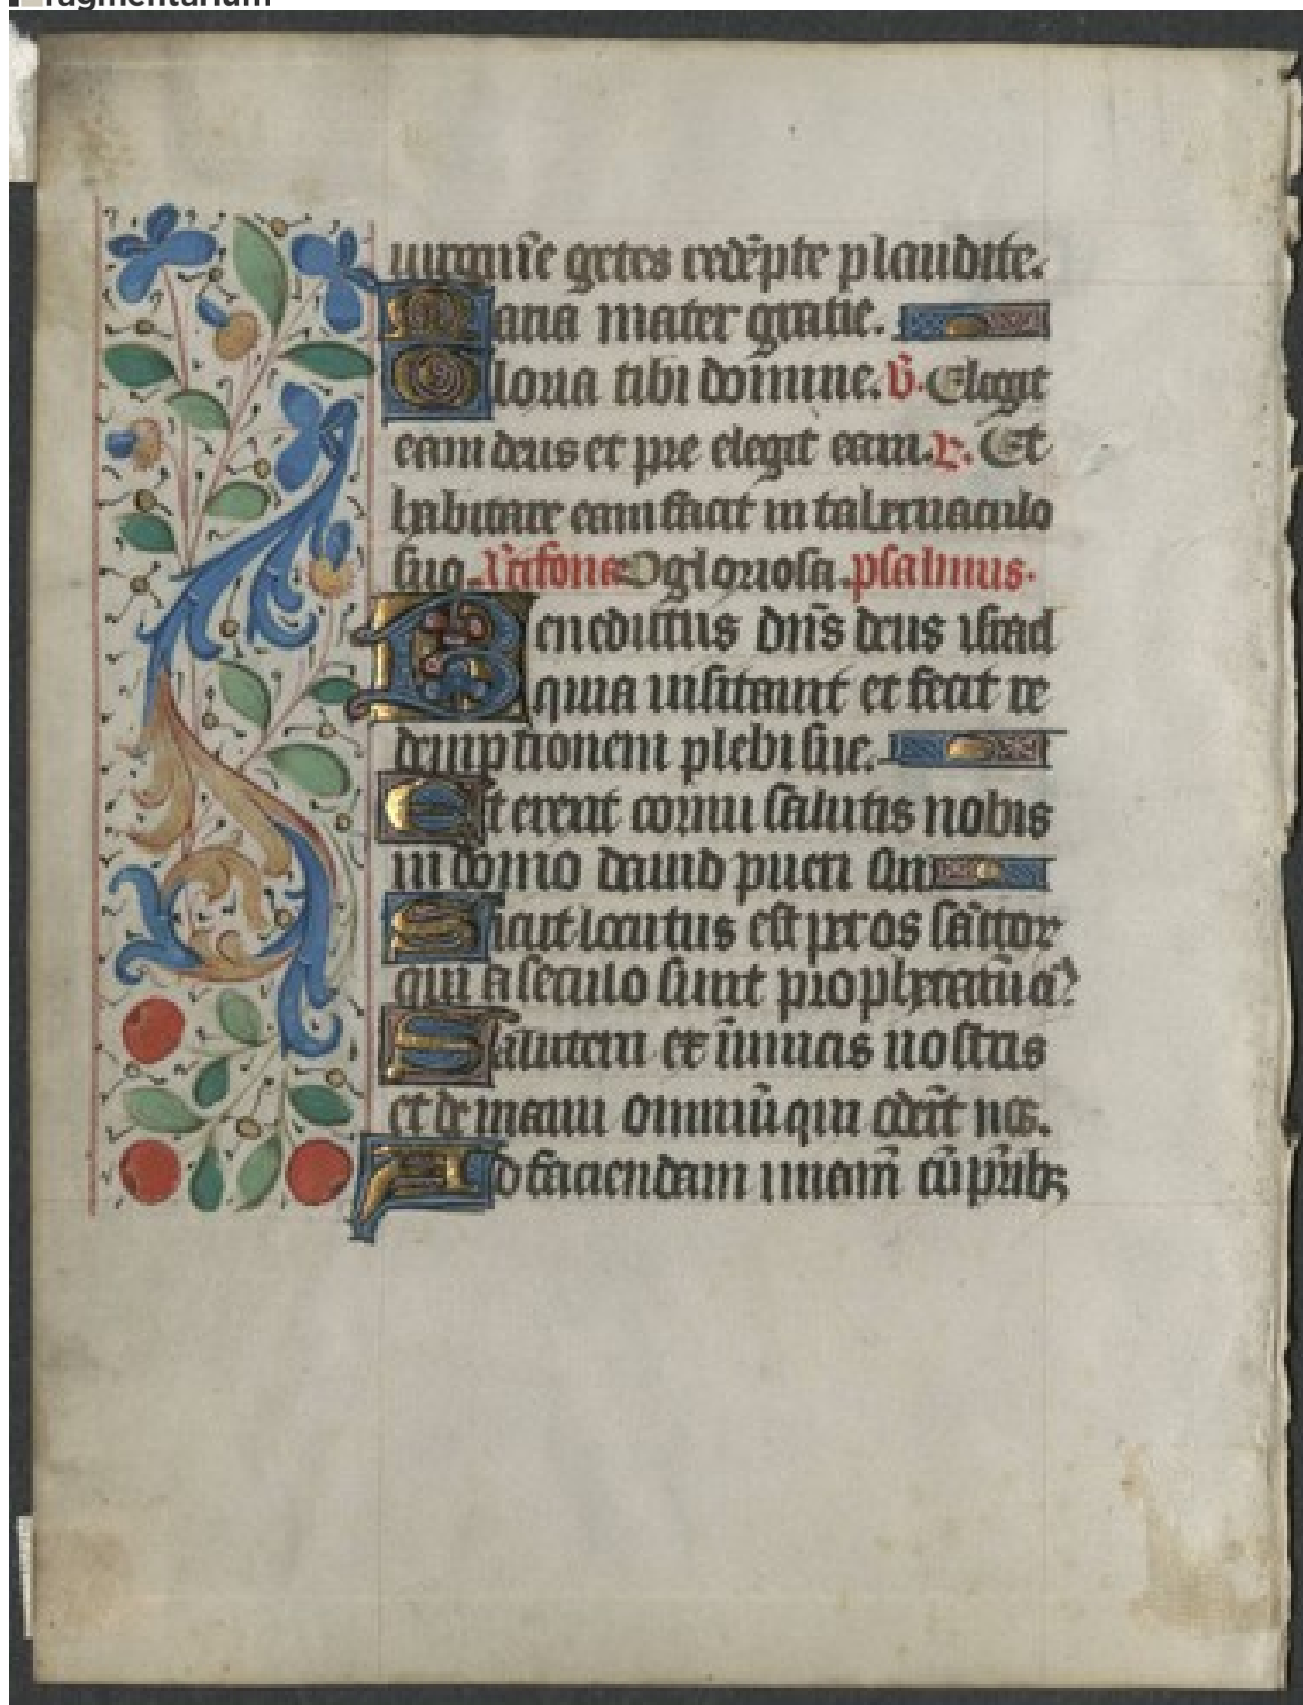 ragmentarium
uirgine gẽtes redẽpte plaudite.
Maria mater gratie.
Gloria tibi domine. v̾. Elegit
eam deus et pre elegit eam. r. Et
habitare eam facit in tabernaculo
suo. An̄tifona O gloriosa. psalmus.
Benedictus dn̄s deus israel
quia uisitauit et fecit re
demptionem plebi sue.
Et erexit cornu salutis nobis
in domo dauid pueri sui
Sicut locutus est per os sãctor
qui a seculo sunt prophetarũ ei9
Salutem ex inimicis nostris
et de manu omniũ qui oderũt nos.
Ad faciendam miam̄ cũ pr̄ibꝫ